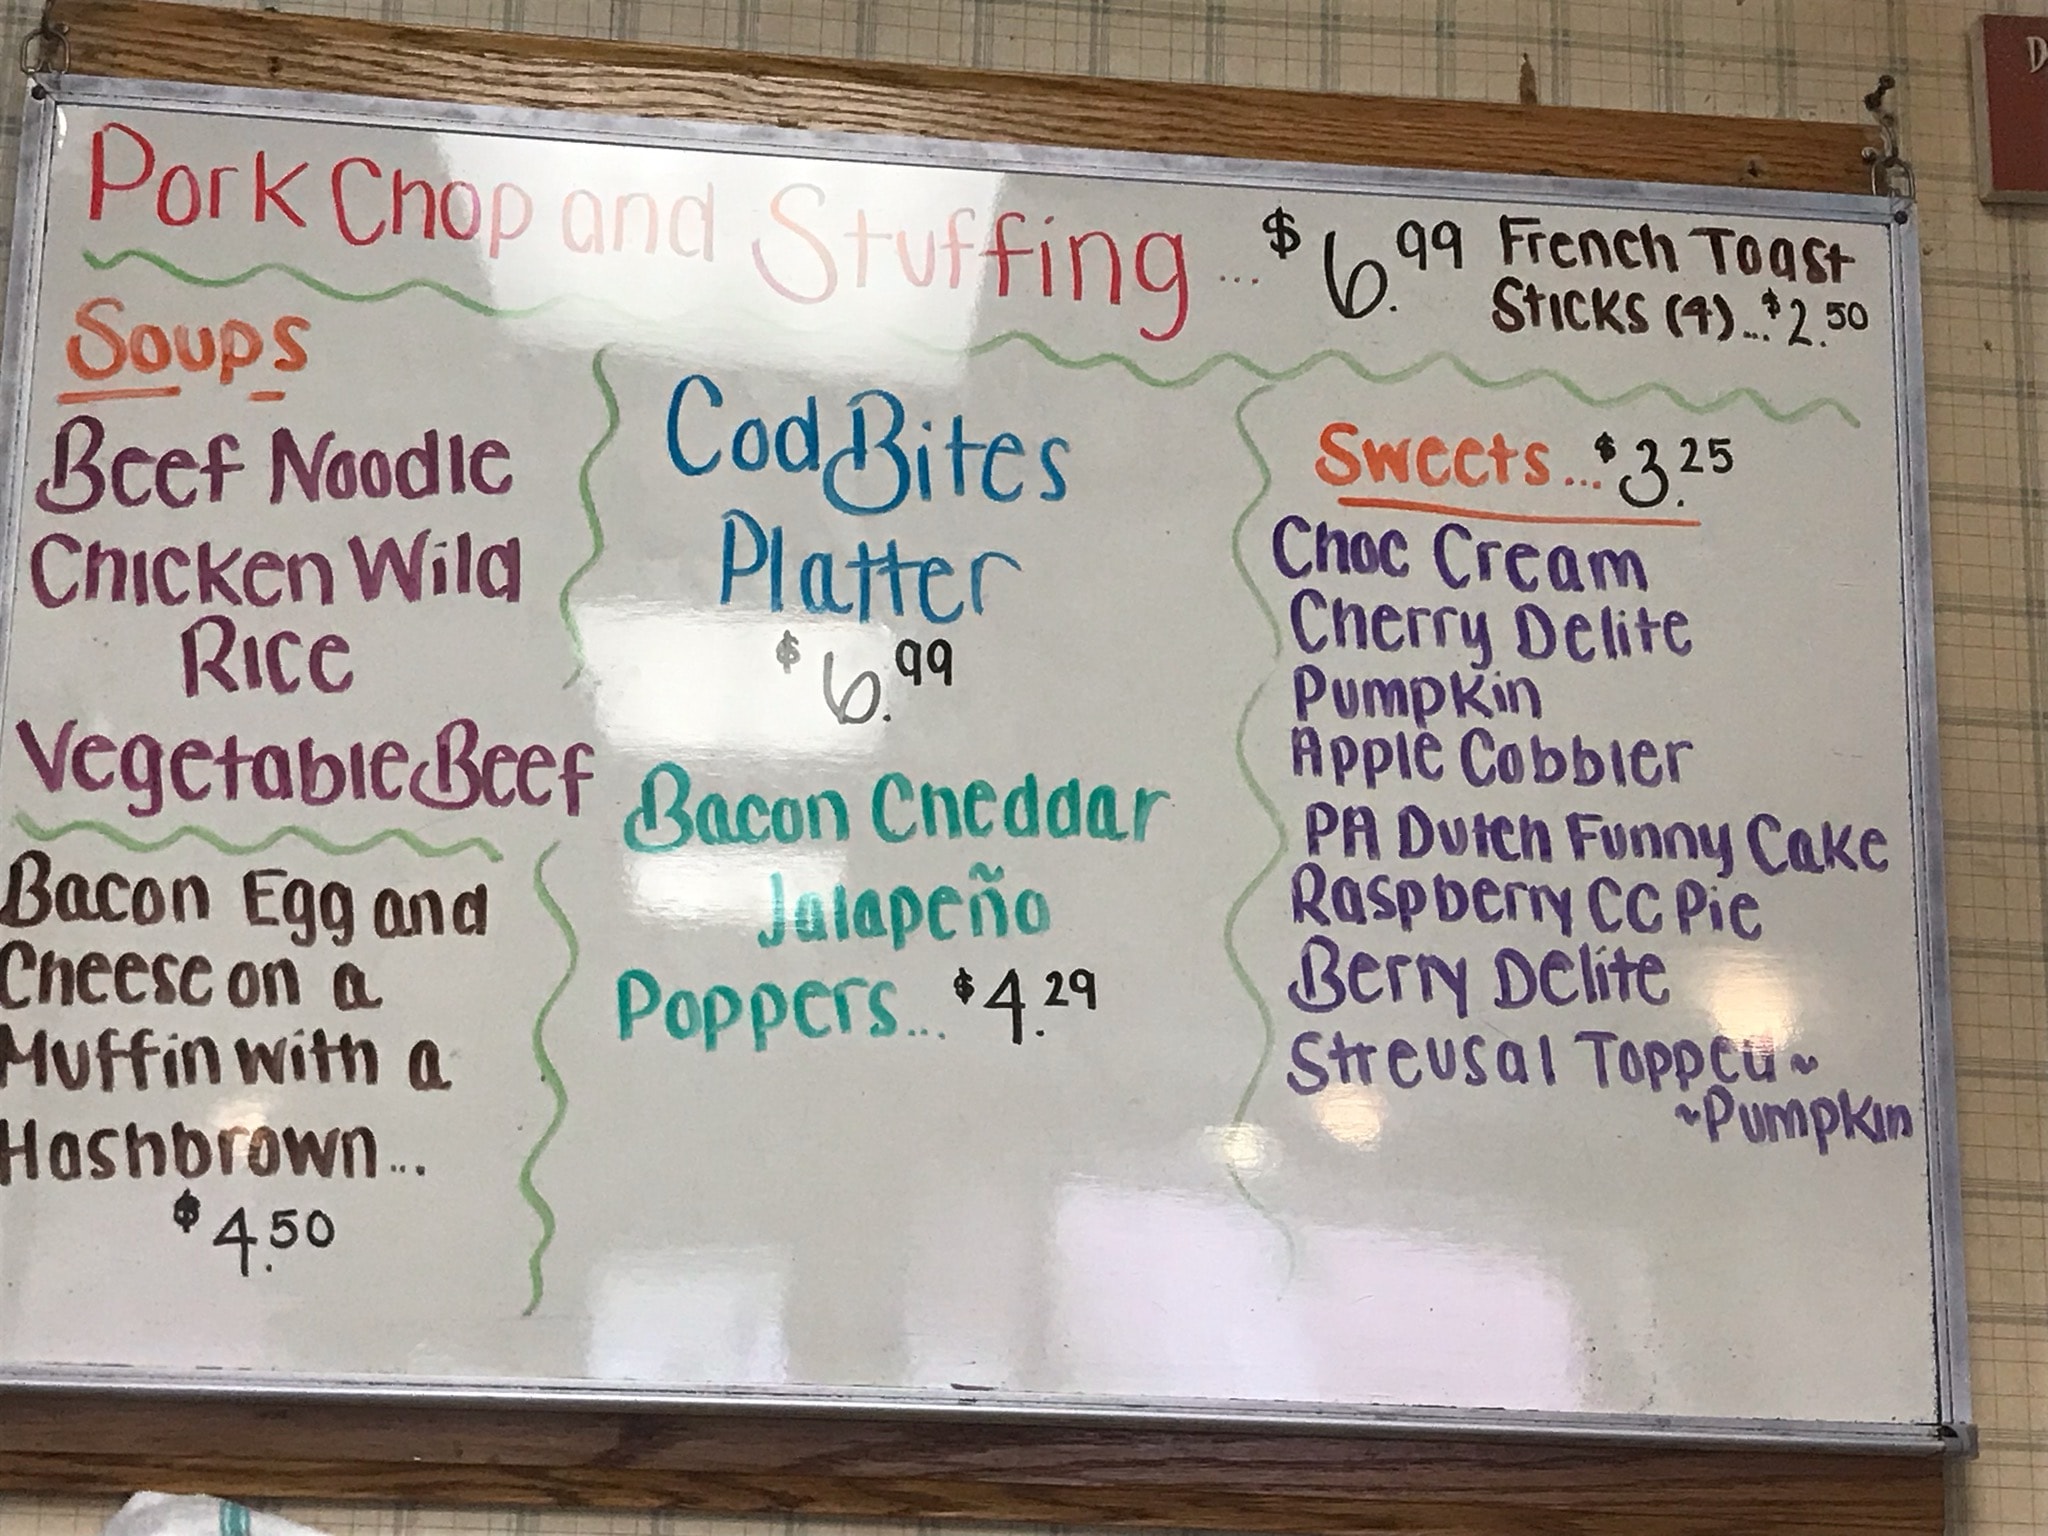 Pork Chop and Stuffing ... $6.99
French Toast
Sticks (4)...$2.50
Soups
Beef Noodle
Chicken Wild
Rice
Vegetable Beef
Bacon Egg and
Cheese on a
Muffin with a
Hashbrown...
$4.50
Cod Bites
Platter
$6.99
Bacon Cheddar
Jalapeño
Poppers... $4.29
Sweets...$3.25
Choc Cream
Cherry Delite
Pumpkin
Apple Cobbler
PA Dutch Funny Cake
Raspberry CC Pie
Berry Delite
Streusal Topped~
~Pumpkin
D